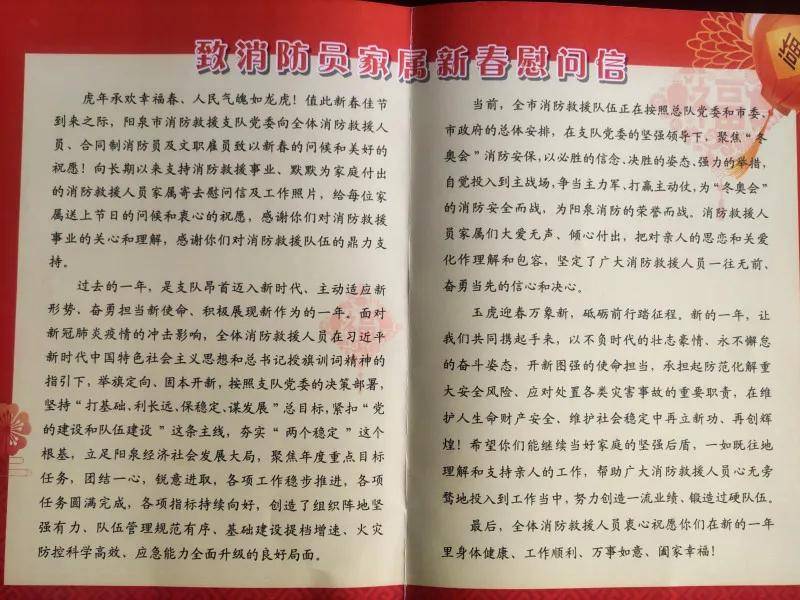 致消防员家属新春慰问信
虎年承欢幸福春、人民气魄如龙虎！值此新春佳节
到来之际，阳泉市消防救援支队党委向全体消防救援人
员、合同制消防员及文职雇员致以新春的问候和美好的
祝愿！向长期以来支持消防救援事业、默默为家庭付出
的消防救援人员家属寄去慰问信及工作照片，给每位家
属送上节日的问候和衷心的祝愿，感谢你们对消防救援
事业的关心和理解，感谢你们对消防救援队伍的鼎力支
持。
过去的一年，是支队昂首迈入新时代、主动适应新
形势、奋勇担当新使命、积极展现新作为的一年。面对
新冠肺炎疫情的冲击影响，全体消防救援人员在习近平
新时代中国特色社会主义思想和总书记授旗训词精神的
指引下，举旗定向、固本开新，按照支队党委的决策部署，
坚持“打基础、利长远、保稳定、谋发展”总目标，紧扣“党
的建设和队伍建设”这条主线，夯实“两个稳定”这个
根基，立足阳泉经济社会发展大局，聚焦年度重点目标
任务，团结一心，锐意进取，各项工作稳步推进，各项
任务圆满完成，各项指标持续向好，创造了组织阵地坚
强有力、队伍管理规范有序、基础建设提档增速、火灾
防控科学高效、应急能力全面升级的良好局面。
当前，全市消防救援队伍正在按照总队党委和市委、
市政府的总体安排，在支队党委的坚强领导下，聚焦“冬
奥会”消防安保，以必胜的信念、决胜的姿态、强力的举措，
自觉投入到主战场，争当主力军、打赢主动仗，为“冬奥会”
的消防安全而战，为阳泉消防的荣誉而战。消防救援人
员家属们大爱无声、倾心付出，把对亲人的思恋和关爱
化作理解和包容，坚定了广大消防救援人员一往无前、
奋勇当先的信心和决心。
玉虎迎春万象新，砥砺前行踏征程。新的一年，让
我们共同携起手来，以不负时代的壮志豪情、永不懈怠
的奋斗姿态，开新图强的使命担当，承担起防范化解重
大安全风险、应对处置各类灾害事故的重要职责，在维
护人生命财产安全、维护社会稳定中再立新功、再创辉
煌！希望你们能继续当好家庭的坚强后盾，一如既往地
理解和支持亲人的工作，帮助广大消防救援人员心无旁
骛地投入到工作当中，努力创造一流业绩、锻造过硬队伍。
最后，全体消防救援人员衷心祝愿你们在新的一年
里身体健康、工作顺利、万事如意、阖家幸福！
福
福